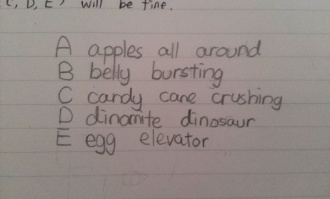 C, D, E) will be fine.
A apples all around
B belly bursting
C candy cane crushing
D dinomite dinosaur
E egg elevator